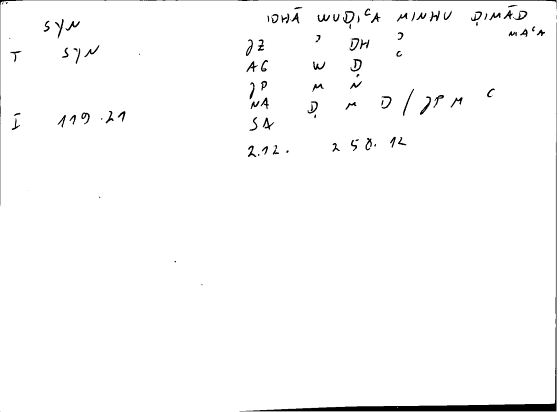 SYN
T SYN
I 119.21
IDHĀ WUḌIᶜA MINHU ḌIMĀD
MAᶜA
JZ ʾ DH ʾ
AG W Ḍ ᶜ
JP M N
NA Ḍ M D / JP M ᶜ
SA
2.12. 258.12